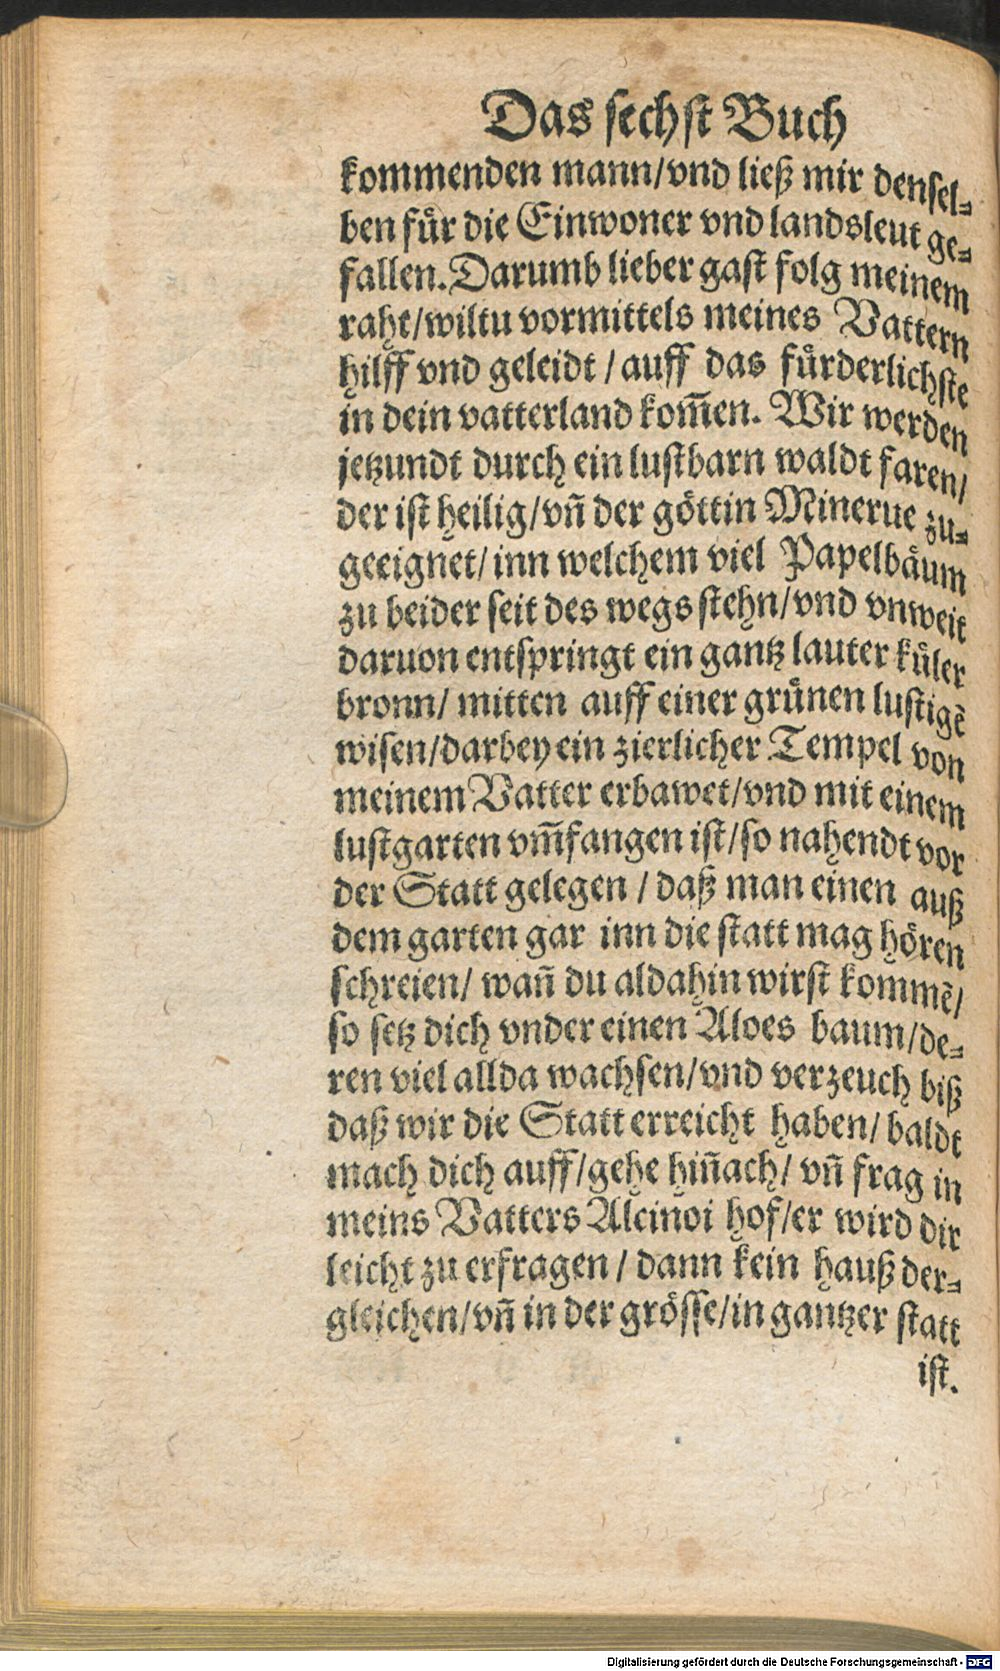 Das sechst Buch
kommenden mann/vnd ließ mir densel-
ben fuͤr die Einwoner vnd landsleut ge-
fallen. Darumb lieber gast folg meinem
raht/wiltu vormittels meines Vattern
hilff vnd geleidt / auff das fuͤrderlichste
in dein vatterland kom̃en. Wir werden
jetzundt durch ein lustbarn waldt faren/
der ist heilig/vñ der goͤttin Mineruе zu-
geeignet/ inn welchem viel Papelbaͤum
zu beider seit des wegs stehn/vnd vnweit
daruon entspringt ein gantz lauter kuͤler
bronn/ mitten auff einer gruͤnen lustigẽ
wisen/darbey ein zierlicher Tempel von
meinem Vatter erbawet/vnd mit einem
lustgarten vm̃fangen ist/so nahendt vor
der Statt gelegen / daß man einen auß
dem garten gar inn die statt mag hoͤren
schreien/ wañ du aldahin wirst kommẽ/
so setz dich vnder einen Aloes baum/de-
ren viel allda wachsen/vnd verzeuch biß
daß wir die Statt erreicht haben/ baldt
mach dich auff/gehe hiñach/ vñ frag in
meins Vatters Alcinoi hof/er wird dir
leicht zu erfragen / dann kein hauß der-
gleichen/vñ in der groͤsse/in gantzer statt
ist.
Digitalisierung gefördert durch die Deutsche Forschungsgemeinschaft - DFG